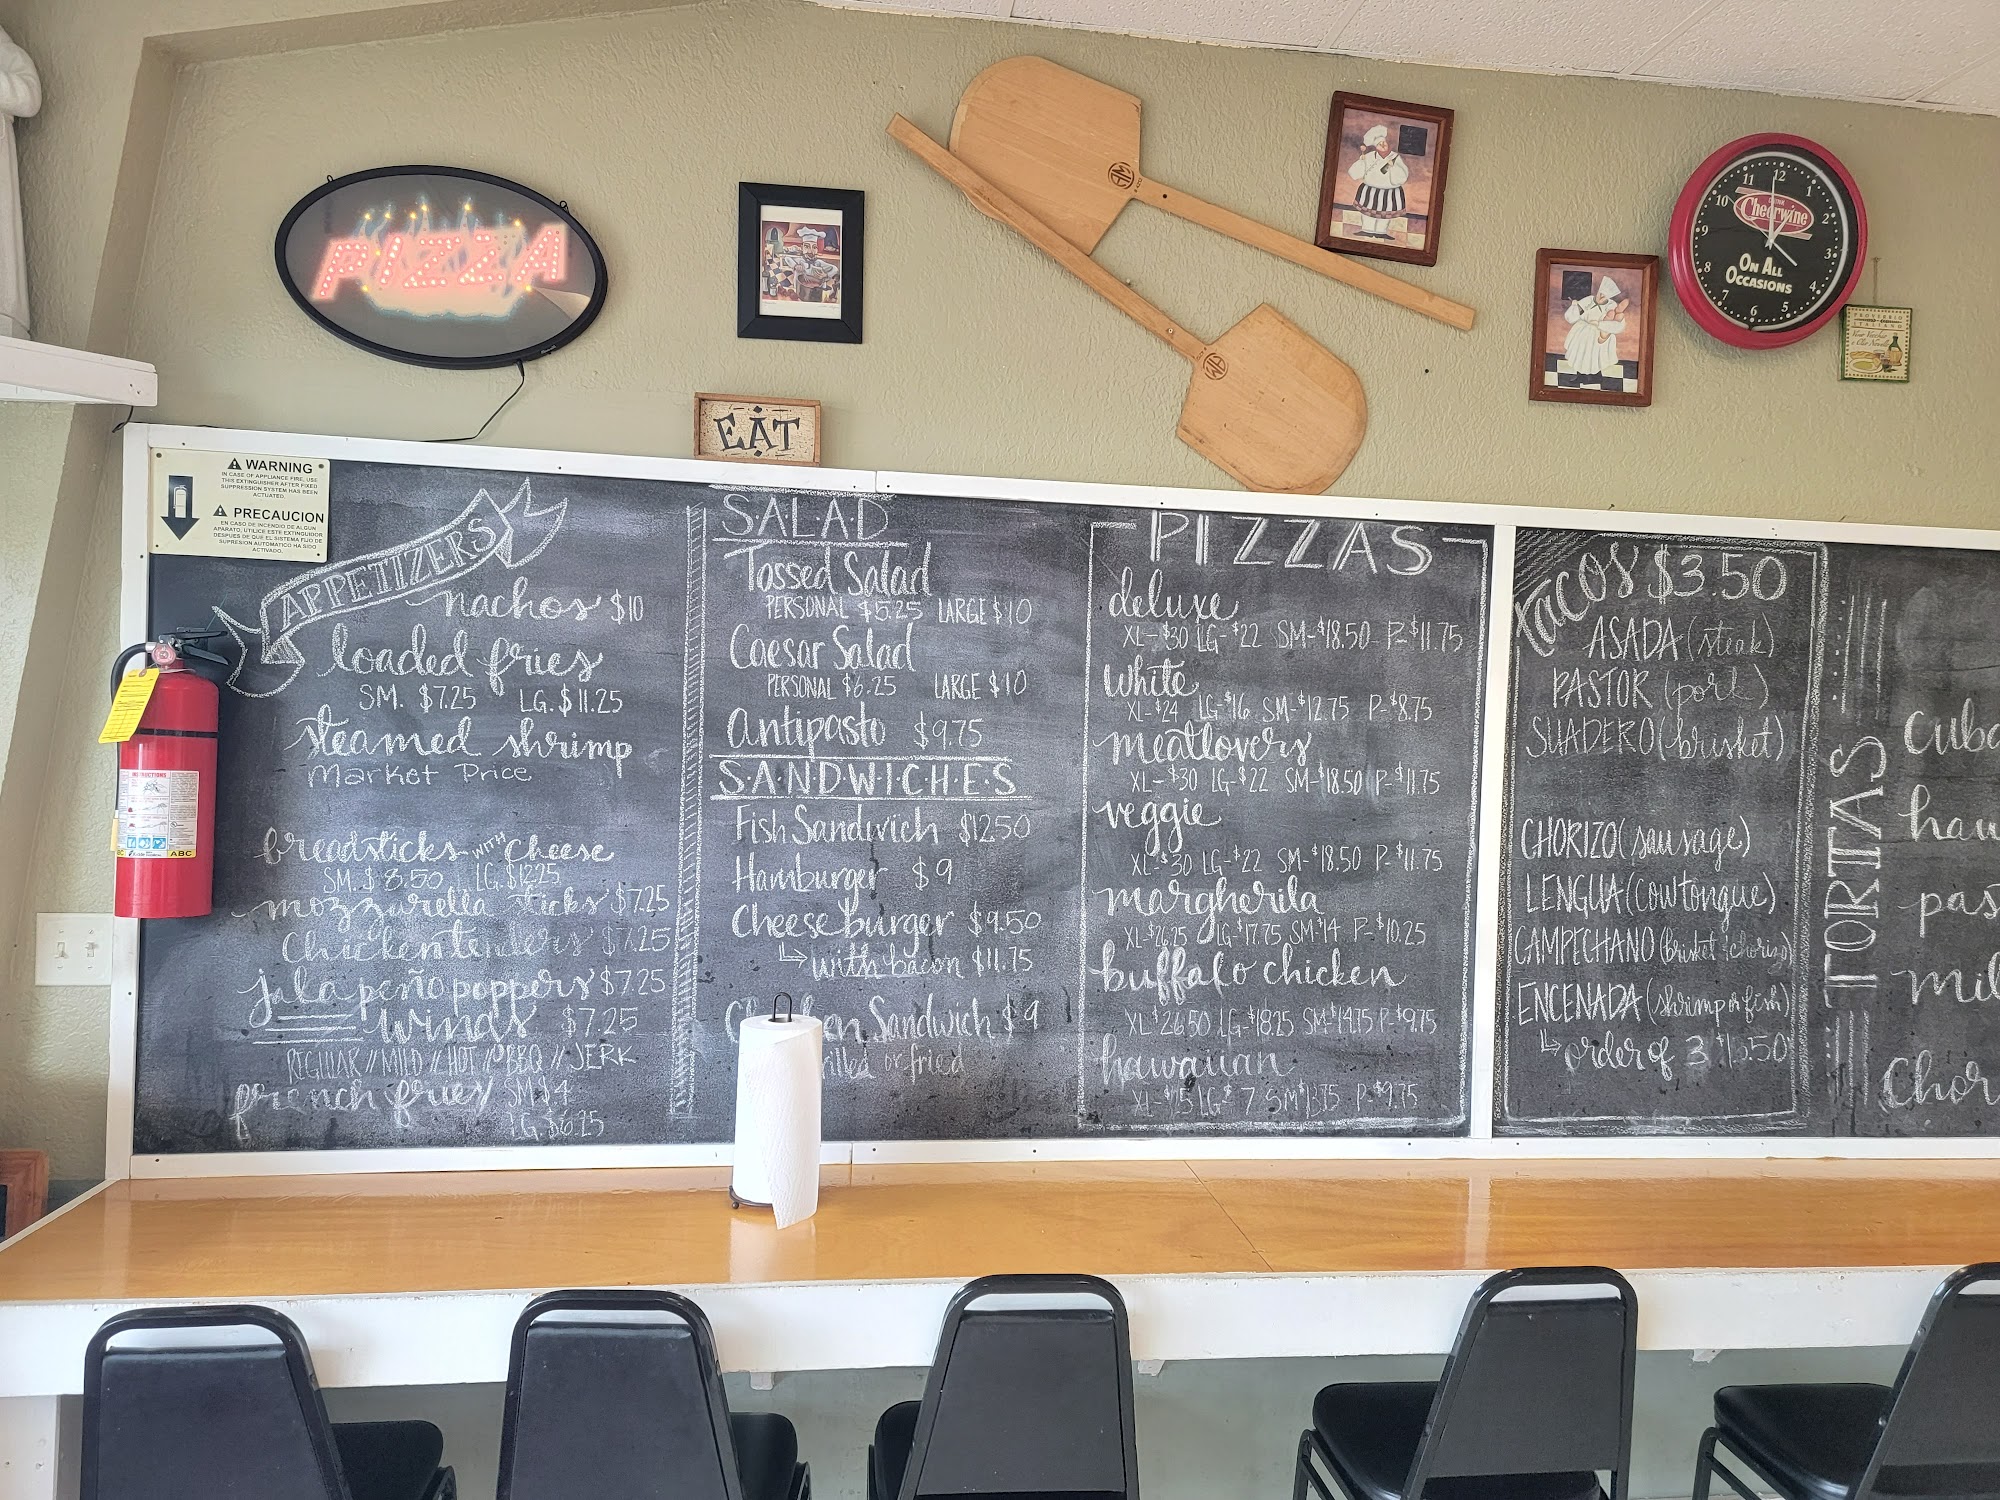 PIZZA
EAT
12
11
10
9
8
7
6
5
4
3
2
1
Cheerwine
ON ALL
OCCASIONS
PROVERBIO
ITALIANO
WARNING
IN CASE OF APPLIANCE FIRE, USE
THIS EXTINGUISHER AFTER FIXED
SUPPRESSION SYSTEM HAS BEEN
ACTUATED.
PRECAUCION
EN CASO DE INCENDIO DE ALGUN
APARATO, UTILICE ESTE EXTINGUIDOR
DESPUES DE QUE EL SISTEMA FIJO DE
SUPRESION AUTOMATICO HA SIDO
ACTIVADO.
INSTRUCTIONS
ABC
APPETIZERS
nachos $10
loaded fries
SM. $7.25 LG. $11.25
steamed shrimp
Market Price
breadsticks WITH Cheese
SM. $8.50 LG. $12.25
mozzarella sticks $7.25
Chicken tenders $7.25
jalapeño poppers $7.25
wings $7.25
REGULAR // MILD // HOT // BBQ // JERK
french fries SM $4
LG. $6.25
S·A·L·A·D
Tossed Salad
PERSONAL $5.25 LARGE $10
Caesar Salad
PERSONAL $6.25 LARGE $10
Antipasto $9.75
S·A·N·D·W·I·C·H·E·S
Fish Sandwich $12.50
Hamburger $9
Cheeseburger $9.50
↳ with bacon $11.75
Sandwich $9
or fried
PIZZAS
deluxe
XL-$30 LG-$22 SM-$18.50 P-$11.75
white
XL-$24 LG-$16 SM-$12.75 P-$8.75
meatlovers
XL-$30 LG-$22 SM-$18.50 P-$11.75
veggie
XL-$30 LG-$22 SM-$18.50 P-$11.75
margherita
XL-$26.25 LG-$17.75 SM-$14 P-$10.25
buffalo chicken
XL $26.50 LG-$18.25 SM-$14.75 P-$9.75
hawaiian
P-$9.75
TACOS $3.50
ASADA (steak)
PASTOR (pork)
SUADERO (brisket)
CHORIZO (sausage)
LENGUA (cow tongue)
CAMPECHANO (brisket + chorizo)
ENCENADA (shrimp or fish)
↳ order of 3
TORTAS
Cuba
haw
pas
mil
Chor